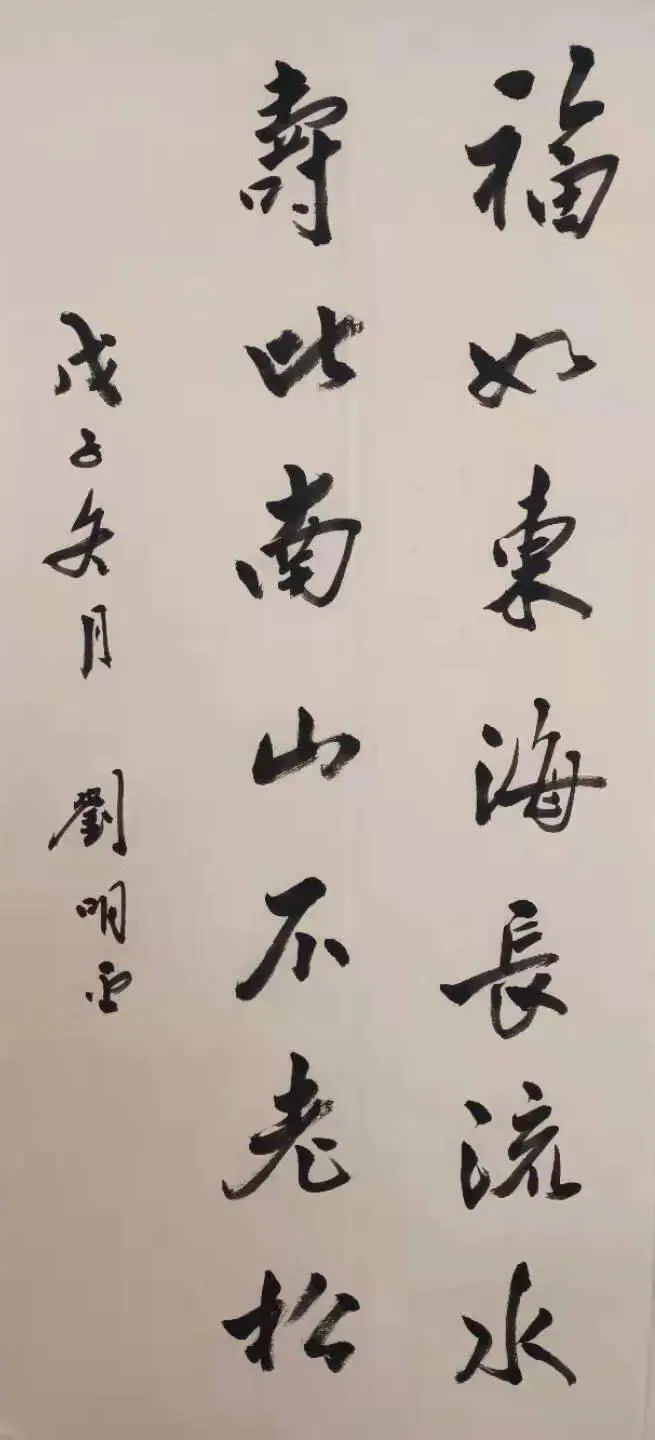 福如東海長流水
壽比南山不老松
戊子冬月 劉明